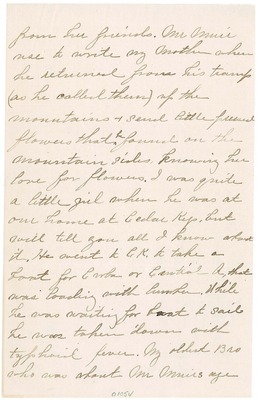 from her friends. Mr Muir
use to write my Mother when
he returned from his tramp
(as he called them) up the
mountains & send little pressed
flowers that he found on the
mountain sides, knowing her
love for flowers. I was quite
a little girl when he was at
our home at Cedar Key, but
will tell you all I know about
it, He went to C.K. to take a
boat for Cuba or Central A. that
was loading with lumber. While
he was waiting for boat to sail
he was taken down with
typhoid fever. My oldest Bro
who was about Mr Muirs age
01054